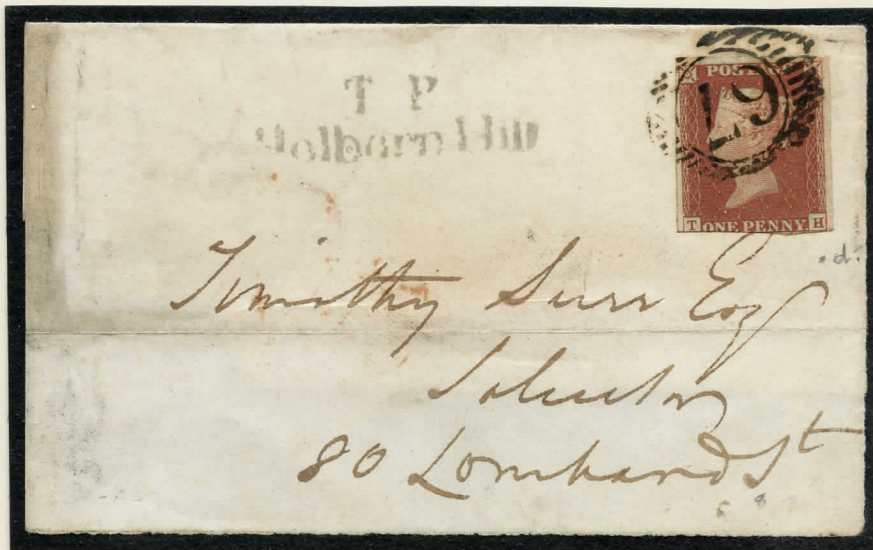 T P
Holborn Hill
POST
19
T ONE PENNY H
Timothy Surr Esq
Solicitor
80 Lombard St
8